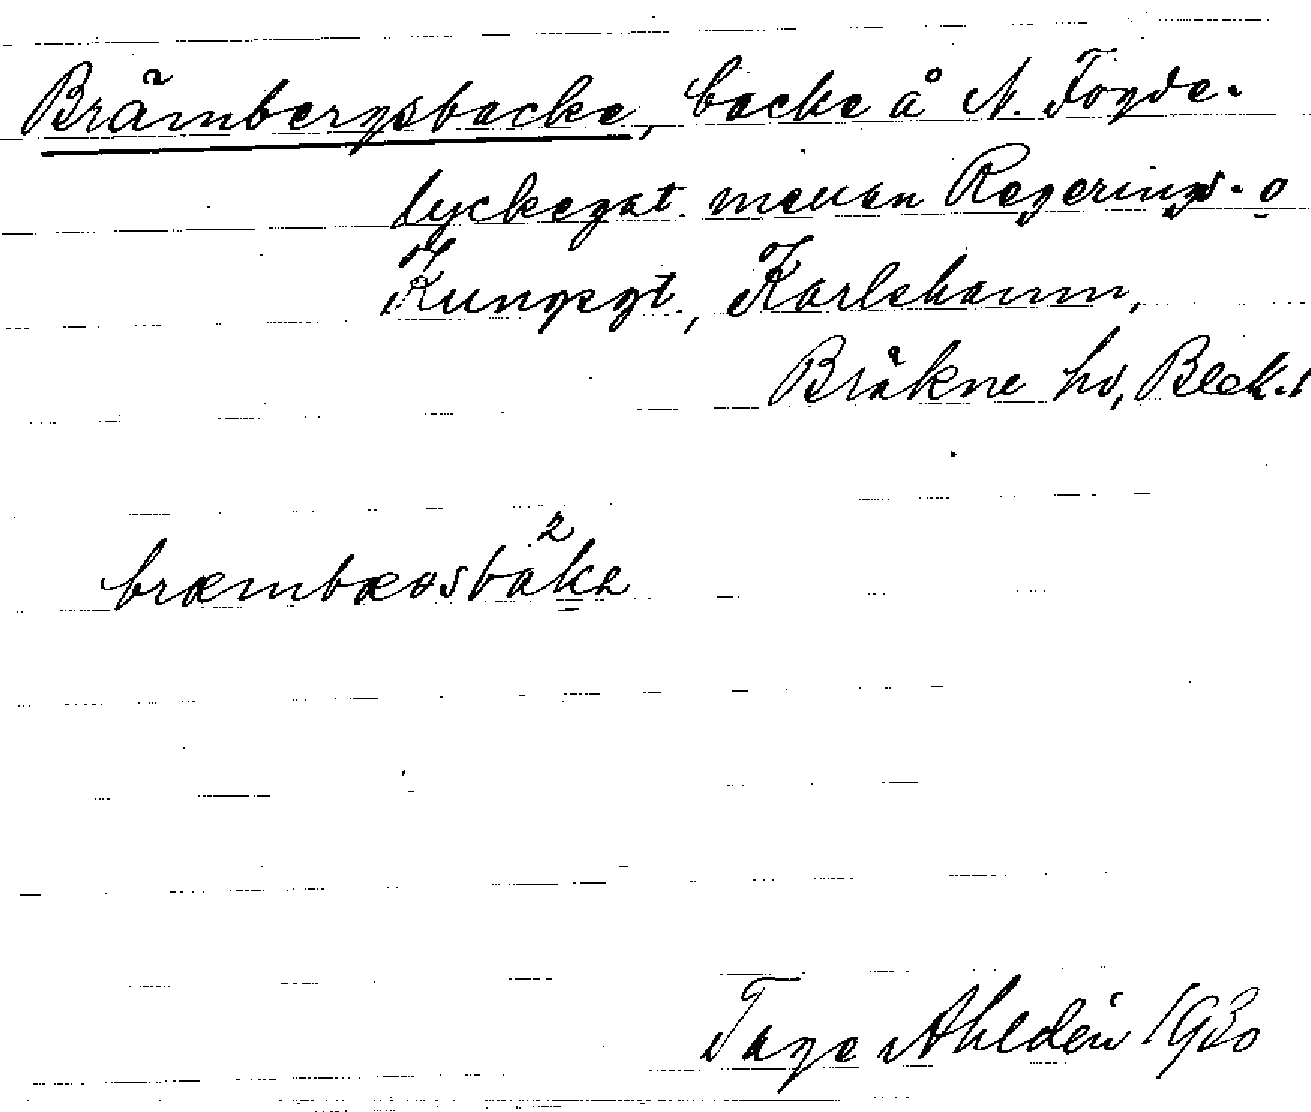 Brämbergsbacke, backe å N. Fogde-
lyckegat. mellan Regerings- o
Kungsgt., Karlshamn,
Bräkne hd, Blek.
2
bræmbæʀsbakə
Tage Ahldén 1930